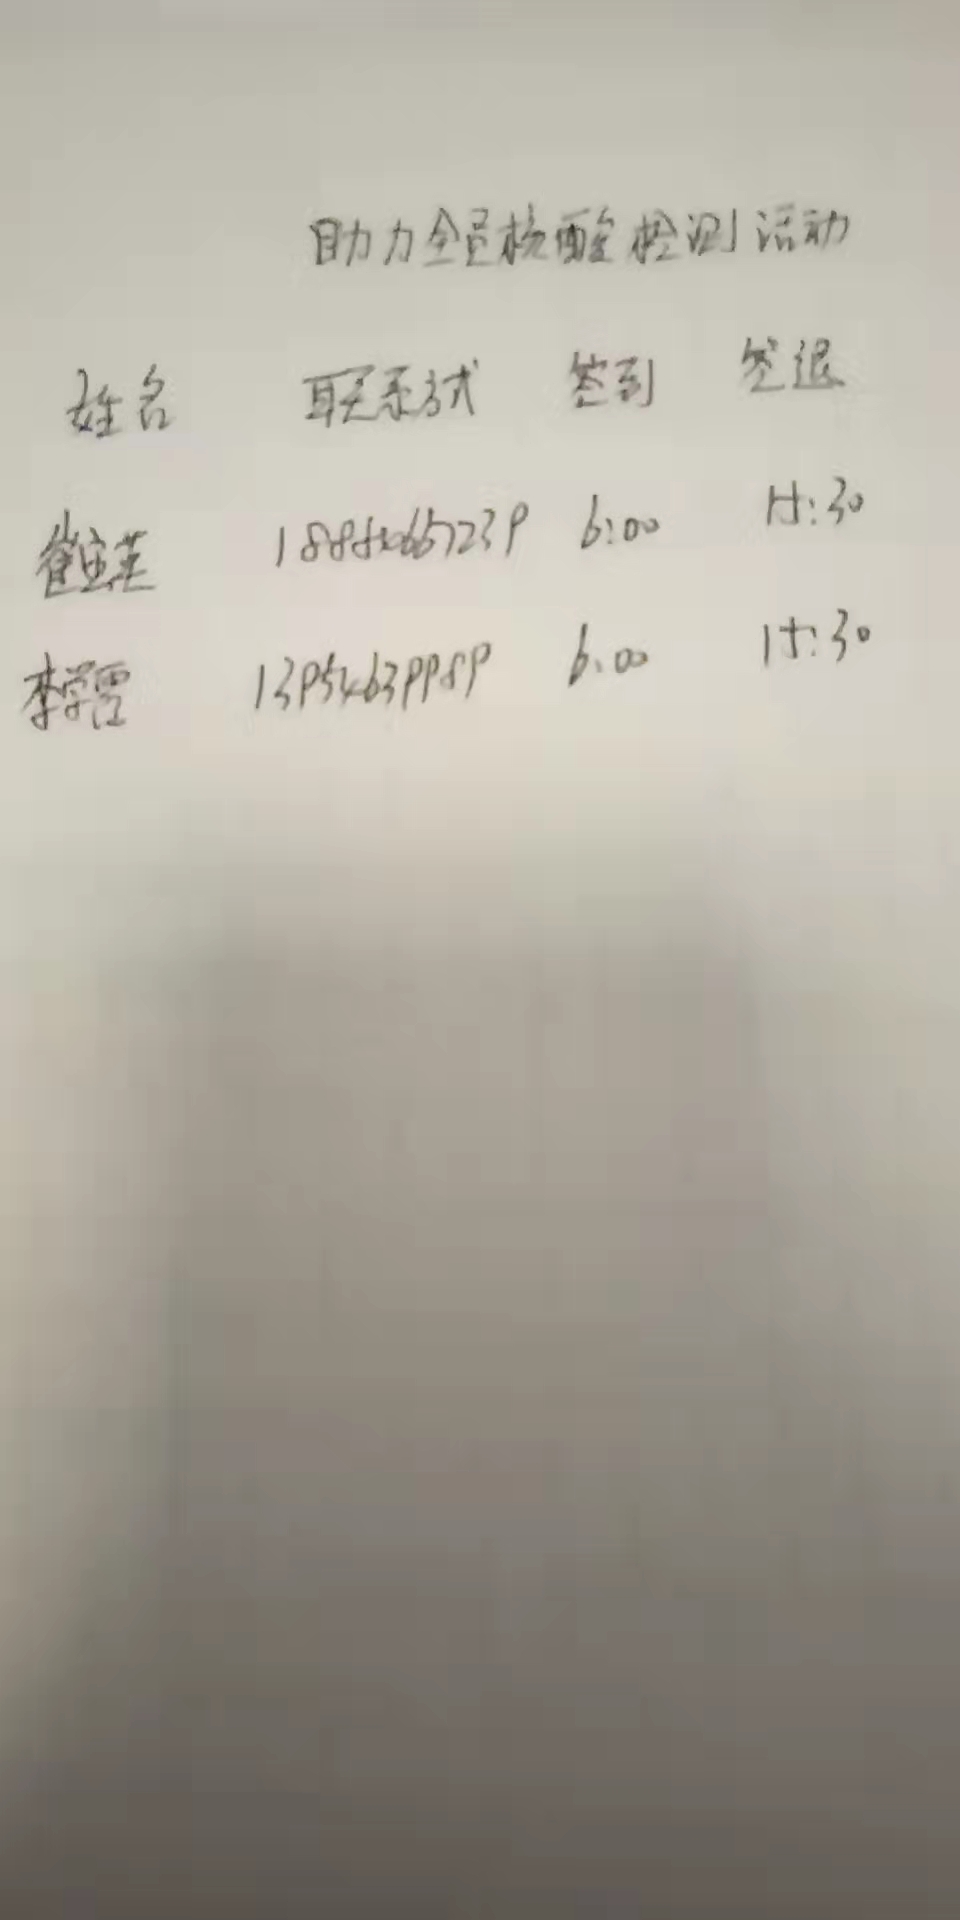 助力全员核酸检测活动
姓名 联系方式 签到 签退
崔宝莲 6:00 15:30
李学霞 13954639989 6:00 15:30